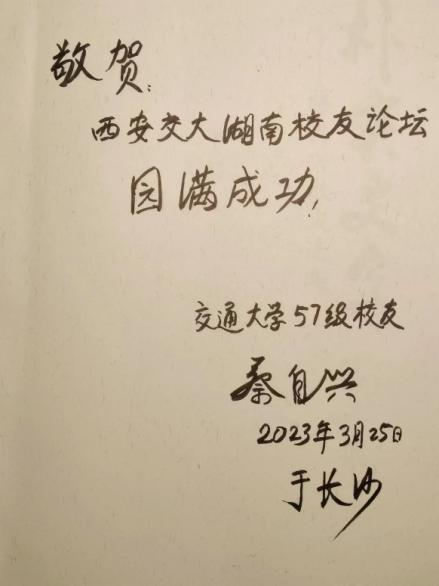 敬贺：
西安交大湖南校友论坛
园满成功！
交通大学57级校友
蔡自兴
2023年3月25日
于长沙